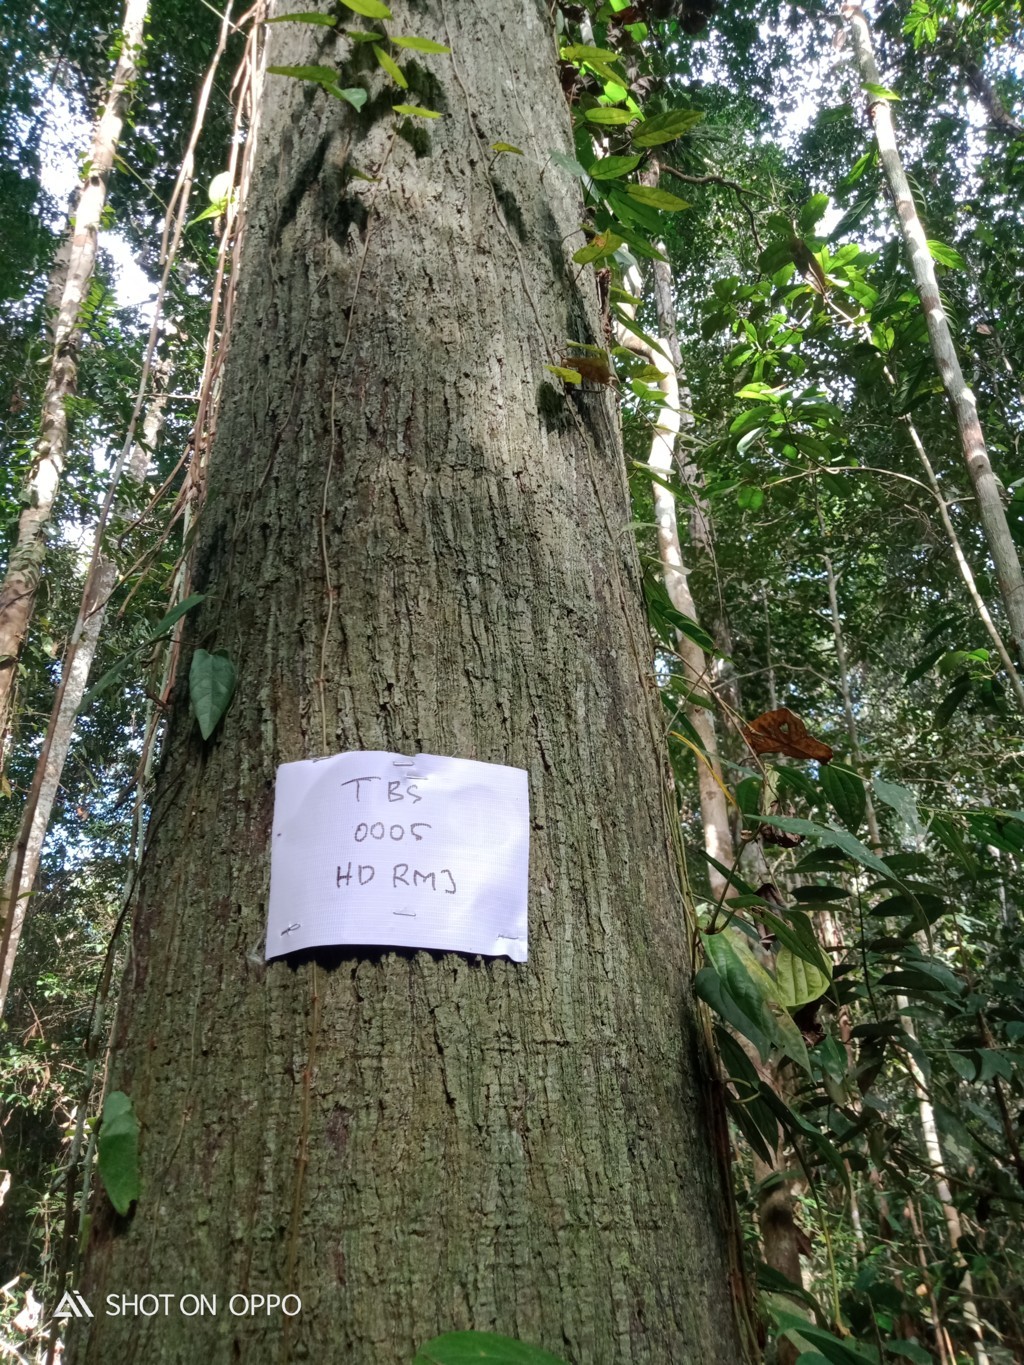 TBS
0005
HD RMJ
SHOT ON OPPO